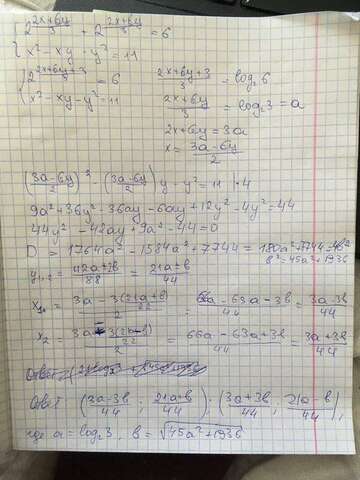 2^((2x+6y)/3) + 2^((2x+6y)/3) = 6
x² - xy - y² = 11
2^((2x+6y+3)/3) = 6
x² - xy - y² = 11
(2x+6y+3)/3 = log₂6
(2x+6y)/3 = log₂3 = a
2x+6y = 3a
x = (3a-6y)/2
((3a-6y)/2)² - ((3a-6y)/2) y - y² = 11 | · 4
9a² + 36y² - 36ay - 6ay + 12y² - 4y² = 44
44y² - 42ay + 9a² - 44 = 0
D = 1764a² - 1584a² + 7744 = 180a² + 7744 = 4b²
b² = 45a² + 1936
y₁,₂ = (42a±2b)/88 = (21a±b)/44
x₁ = (3a - 3(21a+b)/22)/2 = (66a - 63a - 3b)/44 = (3a-3b)/44
x₂ = (3a - 3(21a-b)/22)/2 = (66a - 63a + 3b)/44 = (3a+3b)/44
Ответ:
Ответ: ((3a-3b)/44 ; (21a+b)/44) ; ((3a+3b)/44 ; (21a-b)/44),
где a = log₂3, b = √(45a²+1936)